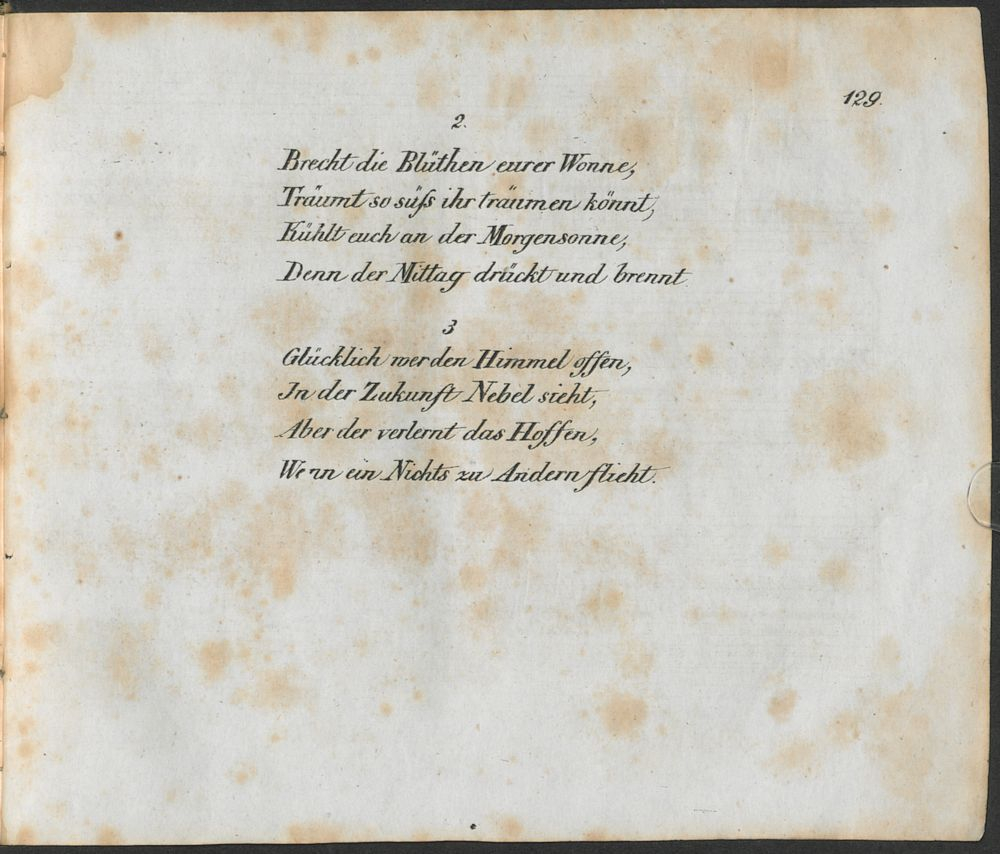 129.
2.
Brecht die Blüthen eurer Wonne,
Träumt so süſs ihr träumen könnt,
Kühlt euch an der Morgensonne,
Denn der Mittag drückt und brennt.
3
Glücklich wer den Himmel offen,
In der Zukunft Nebel sieht,
Aber der verlernt das Hoffen,
Wenn ein Nichts zu Andern flieht.